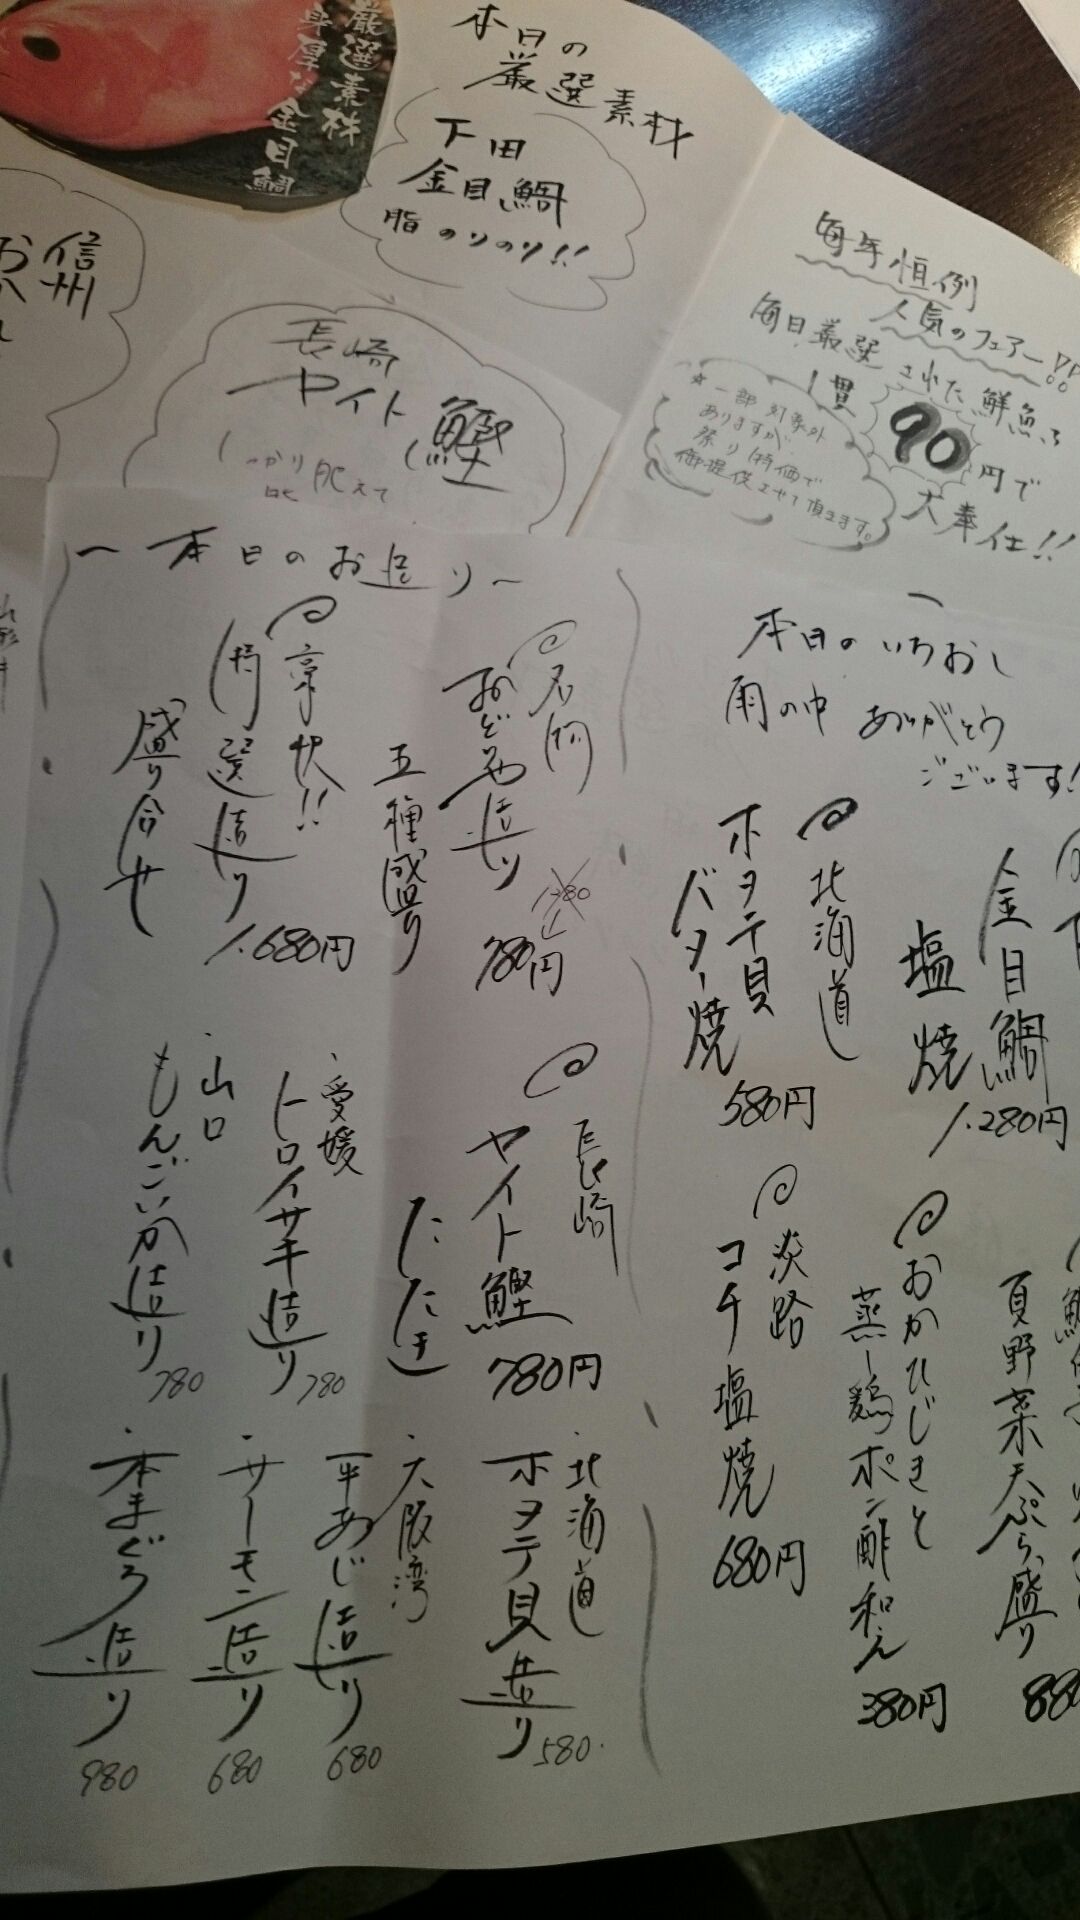 厳選素材
身厚な金目鯛
本日の
厳選素材
下田
金目鯛
脂のりのり!!
信州
長崎
ヤイト鰹
しっかり肥えて
毎年恒例
人気のフェアー!!
毎日厳選された鮮魚
1貫
90円で
大奉仕!!
★一部対象外
ありますが
祭り特価で
御提供させて頂きます。
〜本日のお造り〜
名物
おどろき造り
五種盛り
1380
↓
780円
豪快!!
特選造り
盛り合せ
1.680円
長崎
ヤイト鰹
たたき
780円
・愛媛
トロイサキ造り
780
・山口
もんごいか造り
780
・北海道
ホタテ貝造り
580.
・大阪湾
平あじ造り
680
・サーモン造り
680
・本まぐろ造り
980
本日のいちおし
雨の中ありがとう
ございます!
金目鯛
塩焼
1.280円
北海道
ホタテ貝
バター焼
580円
夏野菜天ぷら盛り
880
おかひじきと
蒸し鶏ポン酢和え
380円
淡路
コチ塩焼
680円